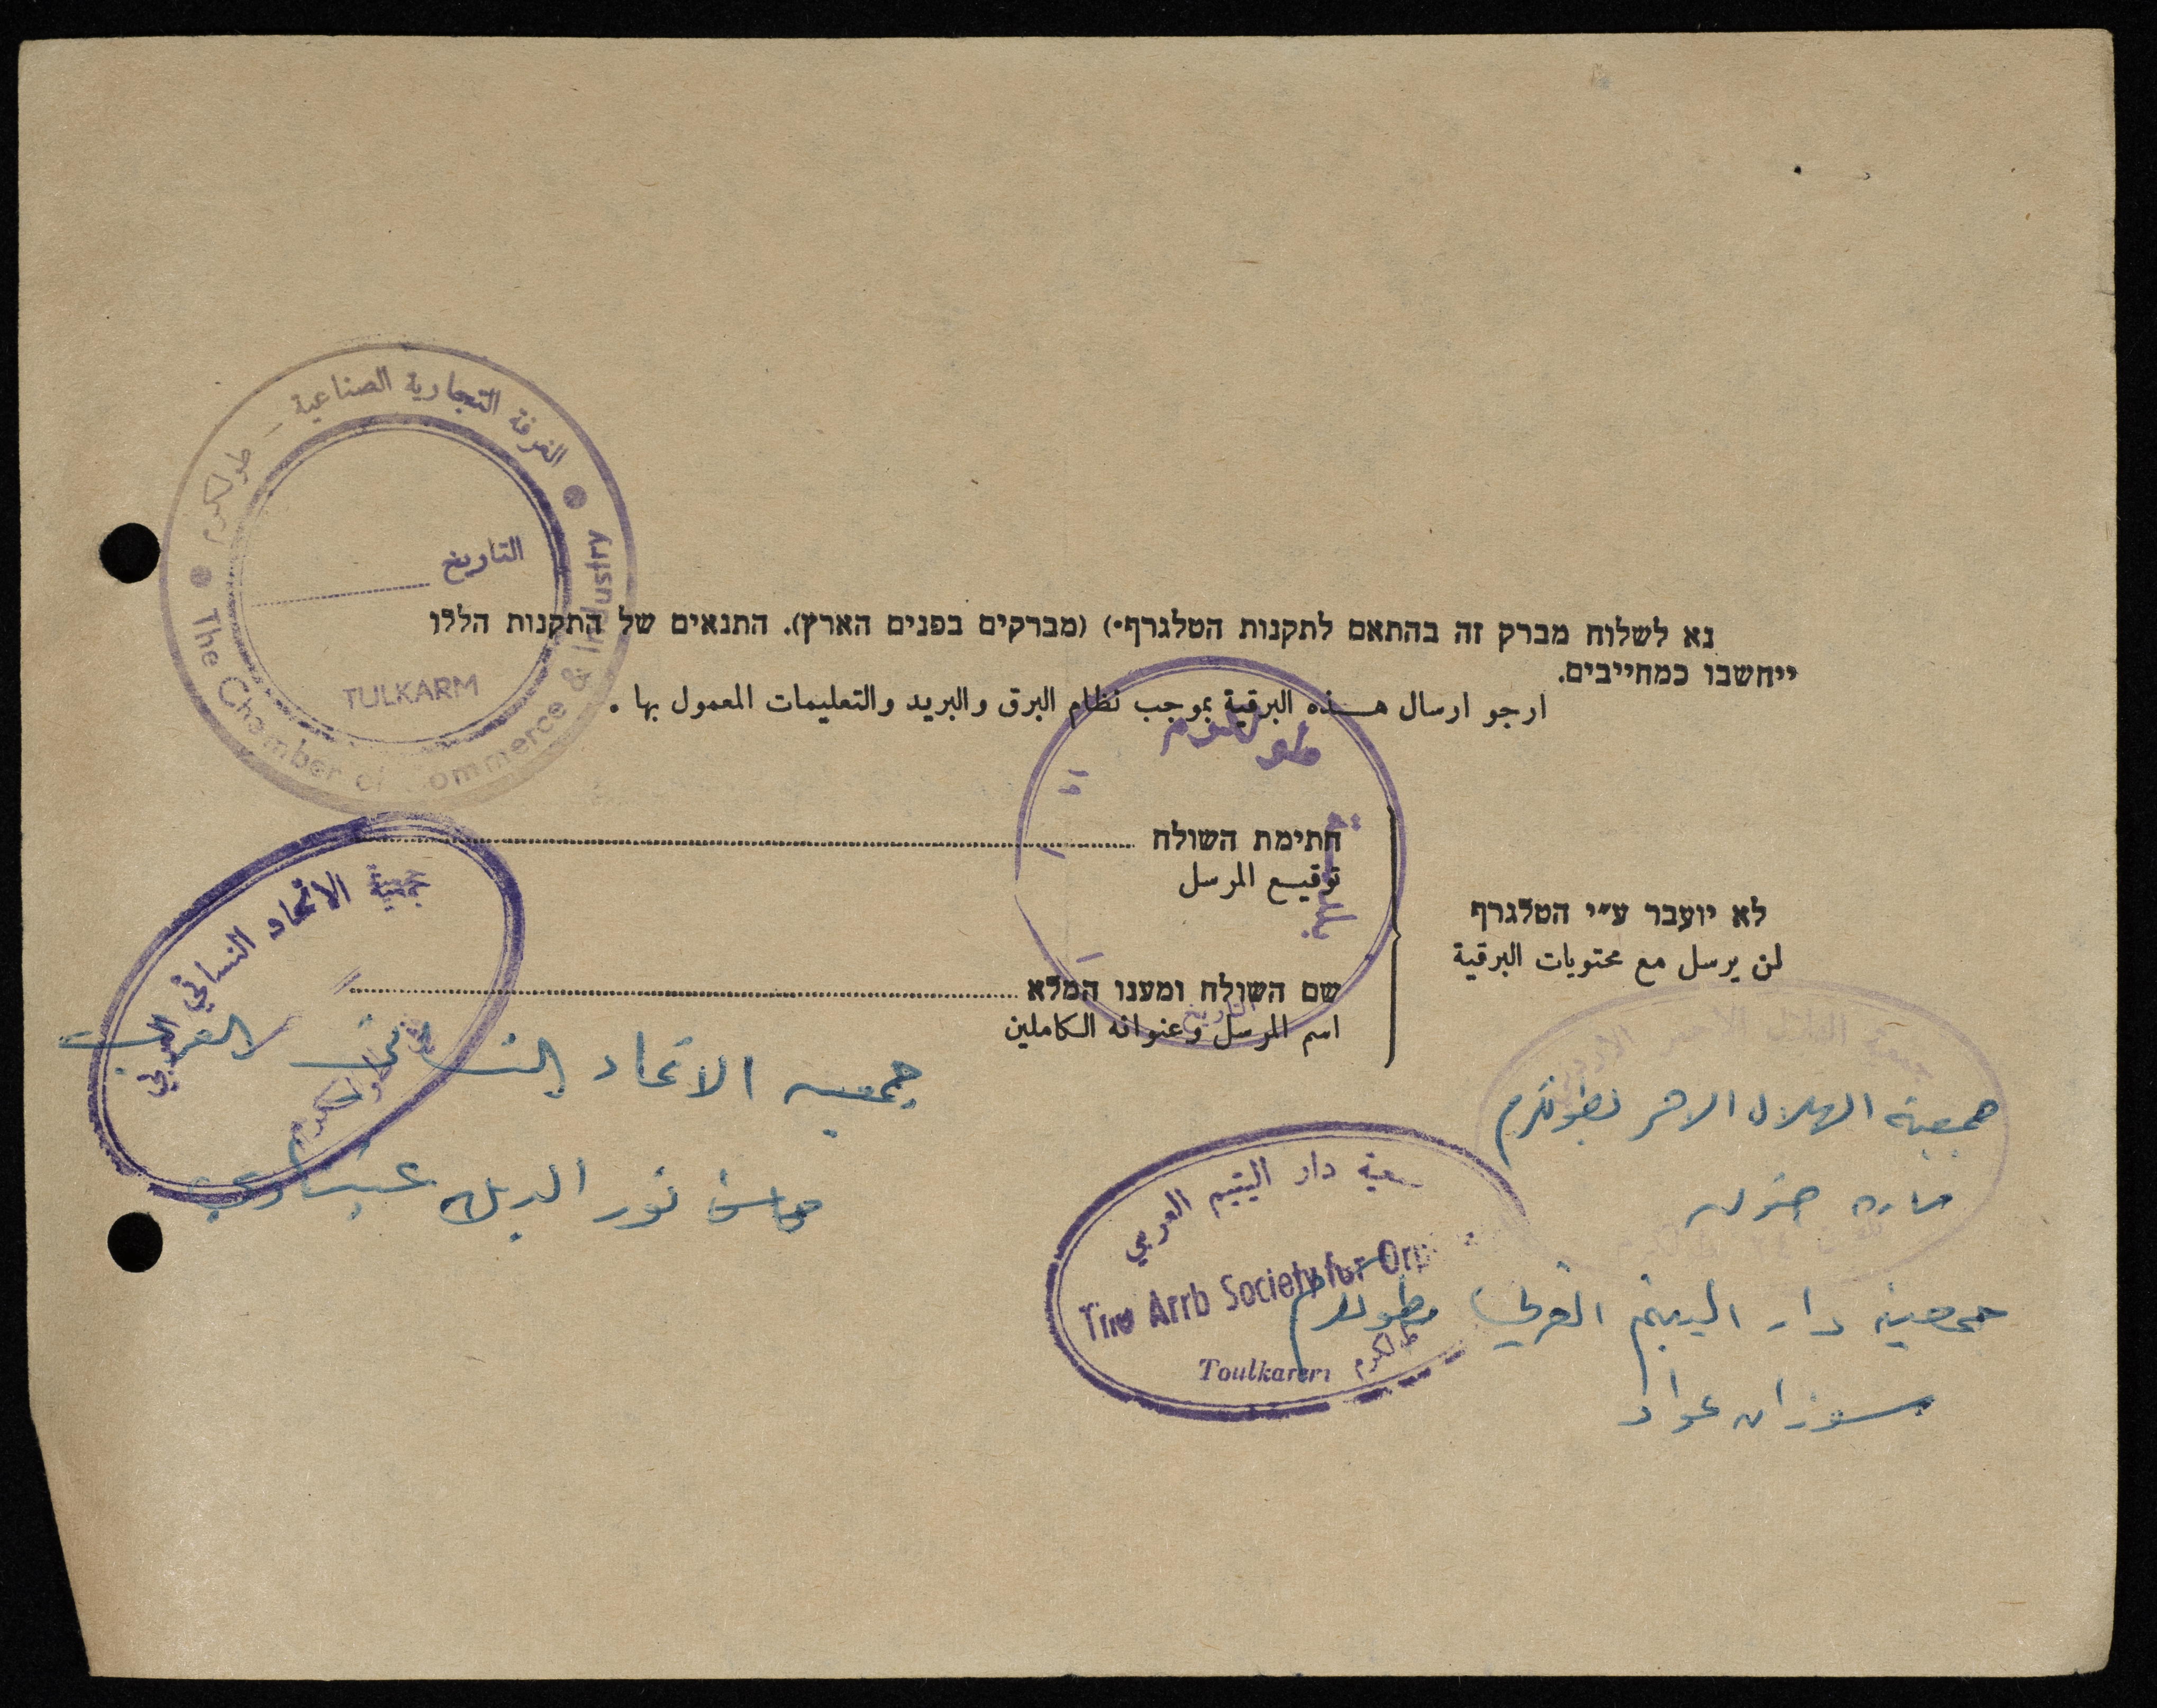 الغرفة التجارية الصناعية – طولكرم
التاريخ
TULKARM
The Chamber of Commerce & Industry
נא לשלוח מברק זה בהתאם לתקנות הטלגרף*) (מברקים בפנים הארץ). התנאים של התקנות הללו
ייחשבו כמחייבים.
ارجو ارسال هذه البرقية بموجب نظام البرق والبريد والتعليمات المعمول بها .
طولكرم
بلدية
התימת השולח
توقيع المرسل
לא יועבר ע״י הטלגרף
لن يرسل مع محتويات البرقية
שם השולח ומענו המלא
اسم المرسل وعنوانه الكاملين
التاريخ
جمعية الاتحاد النسائي العربي
طولكرم
جمعيه الاتحاد النسائي العربي
نور الدين
جمعية الهلال الاحمر
جمعية الهلال الاحمر بطولكرم
جمعية دار اليتيم العربي
The Arrb Society for
Toulkarem طولكرم
جمعية دار اليتيم العربي بطولكرم
سوزان عواد